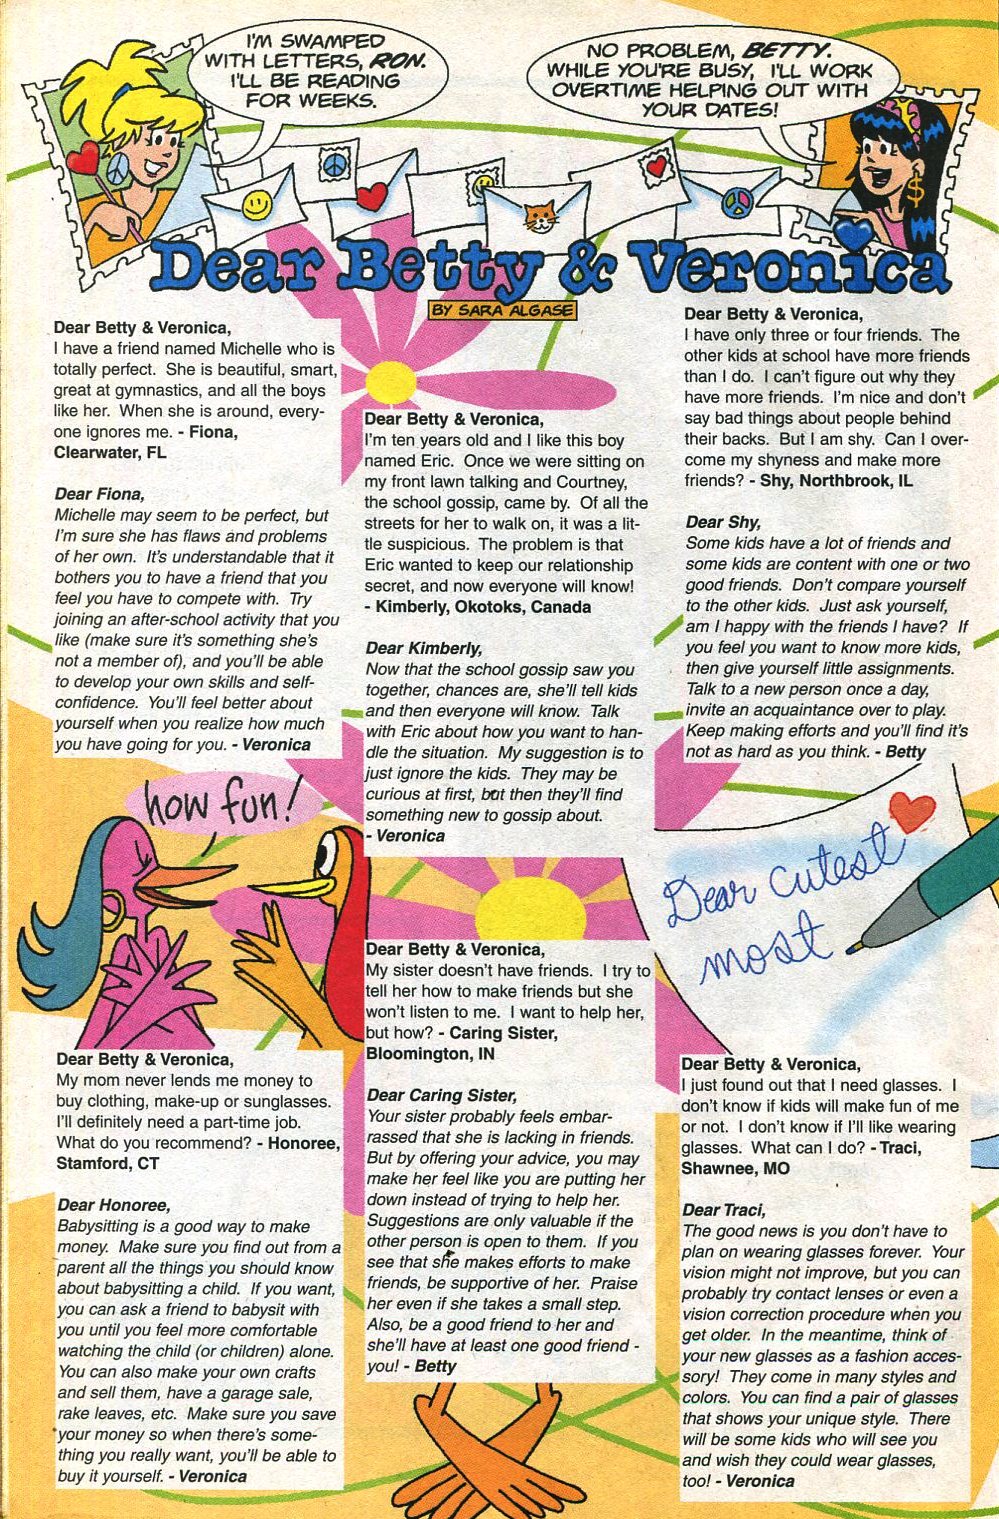 I'M SWAMPED
WITH LETTERS, RON.
I'LL BE READING
FOR WEEKS.
NO PROBLEM, BETTY.
WHILE YOU'RE BUSY, I'LL WORK
OVERTIME HELPING OUT WITH
YOUR DATES!
Dear Betty & Veronica
BY SARA ALGASE
Dear Betty & Veronica,
I have a friend named Michelle who is
totally perfect. She is beautiful, smart,
great at gymnastics, and all the boys
like her. When she is around, every-
one ignores me. - Fiona,
Clearwater, FL
Dear Fiona,
Michelle may seem to be perfect, but
I'm sure she has flaws and problems
of her own. It's understandable that it
bothers you to have a friend that you
feel you have to compete with. Try
joining an after-school activity that you
like (make sure it's something she's
not a member of), and you'll be able
to develop your own skills and self-
confidence. You'll feel better about
yourself when you realize how much
you have going for you. - Veronica
how fun!
Dear Betty & Veronica,
My mom never lends me money to
buy clothing, make-up or sunglasses.
I'll definitely need a part-time job.
What do you recommend? - Honoree,
Stamford, CT
Dear Honoree,
Babysitting is a good way to make
money. Make sure you find out from a
parent all the things you should know
about babysitting a child. If you want,
you can ask a friend to babysit with
you until you feel more comfortable
watching the child (or children) alone.
You can also make your own crafts
and sell them, have a garage sale,
rake leaves, etc. Make sure you save
your money so when there's some-
thing you really want, you'll be able to
buy it yourself. - Veronica
Dear Betty & Veronica,
I'm ten years old and I like this boy
named Eric. Once we were sitting on
my front lawn talking and Courtney,
the school gossip, came by. Of all the
streets for her to walk on, it was a lit-
tle suspicious. The problem is that
Eric wanted to keep our relationship
secret, and now everyone will know!
- Kimberly, Okotoks, Canada
Dear Kimberly,
Now that the school gossip saw you
together, chances are, she'll tell kids
and then everyone will know. Talk
with Eric about how you want to han-
dle the situation. My suggestion is to
just ignore the kids. They may be
curious at first, but then they'll find
something new to gossip about.
- Veronica
Dear Betty & Veronica,
My sister doesn't have friends. I try to
tell her how to make friends but she
won't listen to me. I want to help her,
but how? - Caring Sister,
Bloomington, IN
Dear Caring Sister,
Your sister probably feels embar-
rassed that she is lacking in friends.
But by offering your advice, you may
make her feel like you are putting her
down instead of trying to help her.
Suggestions are only valuable if the
other person is open to them. If you
see that she makes efforts to make
friends, be supportive of her. Praise
her even if she takes a small step.
Also, be a good friend to her and
she'll have at least one good friend -
you! - Betty
Dear Betty & Veronica,
I have only three or four friends. The
other kids at school have more friends
than I do. I can't figure out why they
have more friends. I'm nice and don't
say bad things about people behind
their backs. But I am shy. Can I over-
come my shyness and make more
friends? - Shy, Northbrook, IL
Dear Shy,
Some kids have a lot of friends and
some kids are content with one or two
good friends. Don't compare yourself
to the other kids. Just ask yourself,
am I happy with the friends I have? If
you feel you want to know more kids,
then give yourself little assignments.
Talk to a new person once a day,
invite an acquaintance over to play.
Keep making efforts and you'll find it's
not as hard as you think. - Betty
Dear cutest
most
Dear Betty & Veronica,
I just found out that I need glasses. I
don't know if kids will make fun of me
or not. I don't know if I'll like wearing
glasses. What can I do? - Traci,
Shawnee, MO
Dear Traci,
The good news is you don't have to
plan on wearing glasses forever. Your
vision might not improve, but you can
probably try contact lenses or even a
vision correction procedure when you
get older. In the meantime, think of
your new glasses as a fashion acces-
sory! They come in many styles and
colors. You can find a pair of glasses
that shows your unique style. There
will be some kids who will see you
and wish they could wear glasses,
too! - Veronica